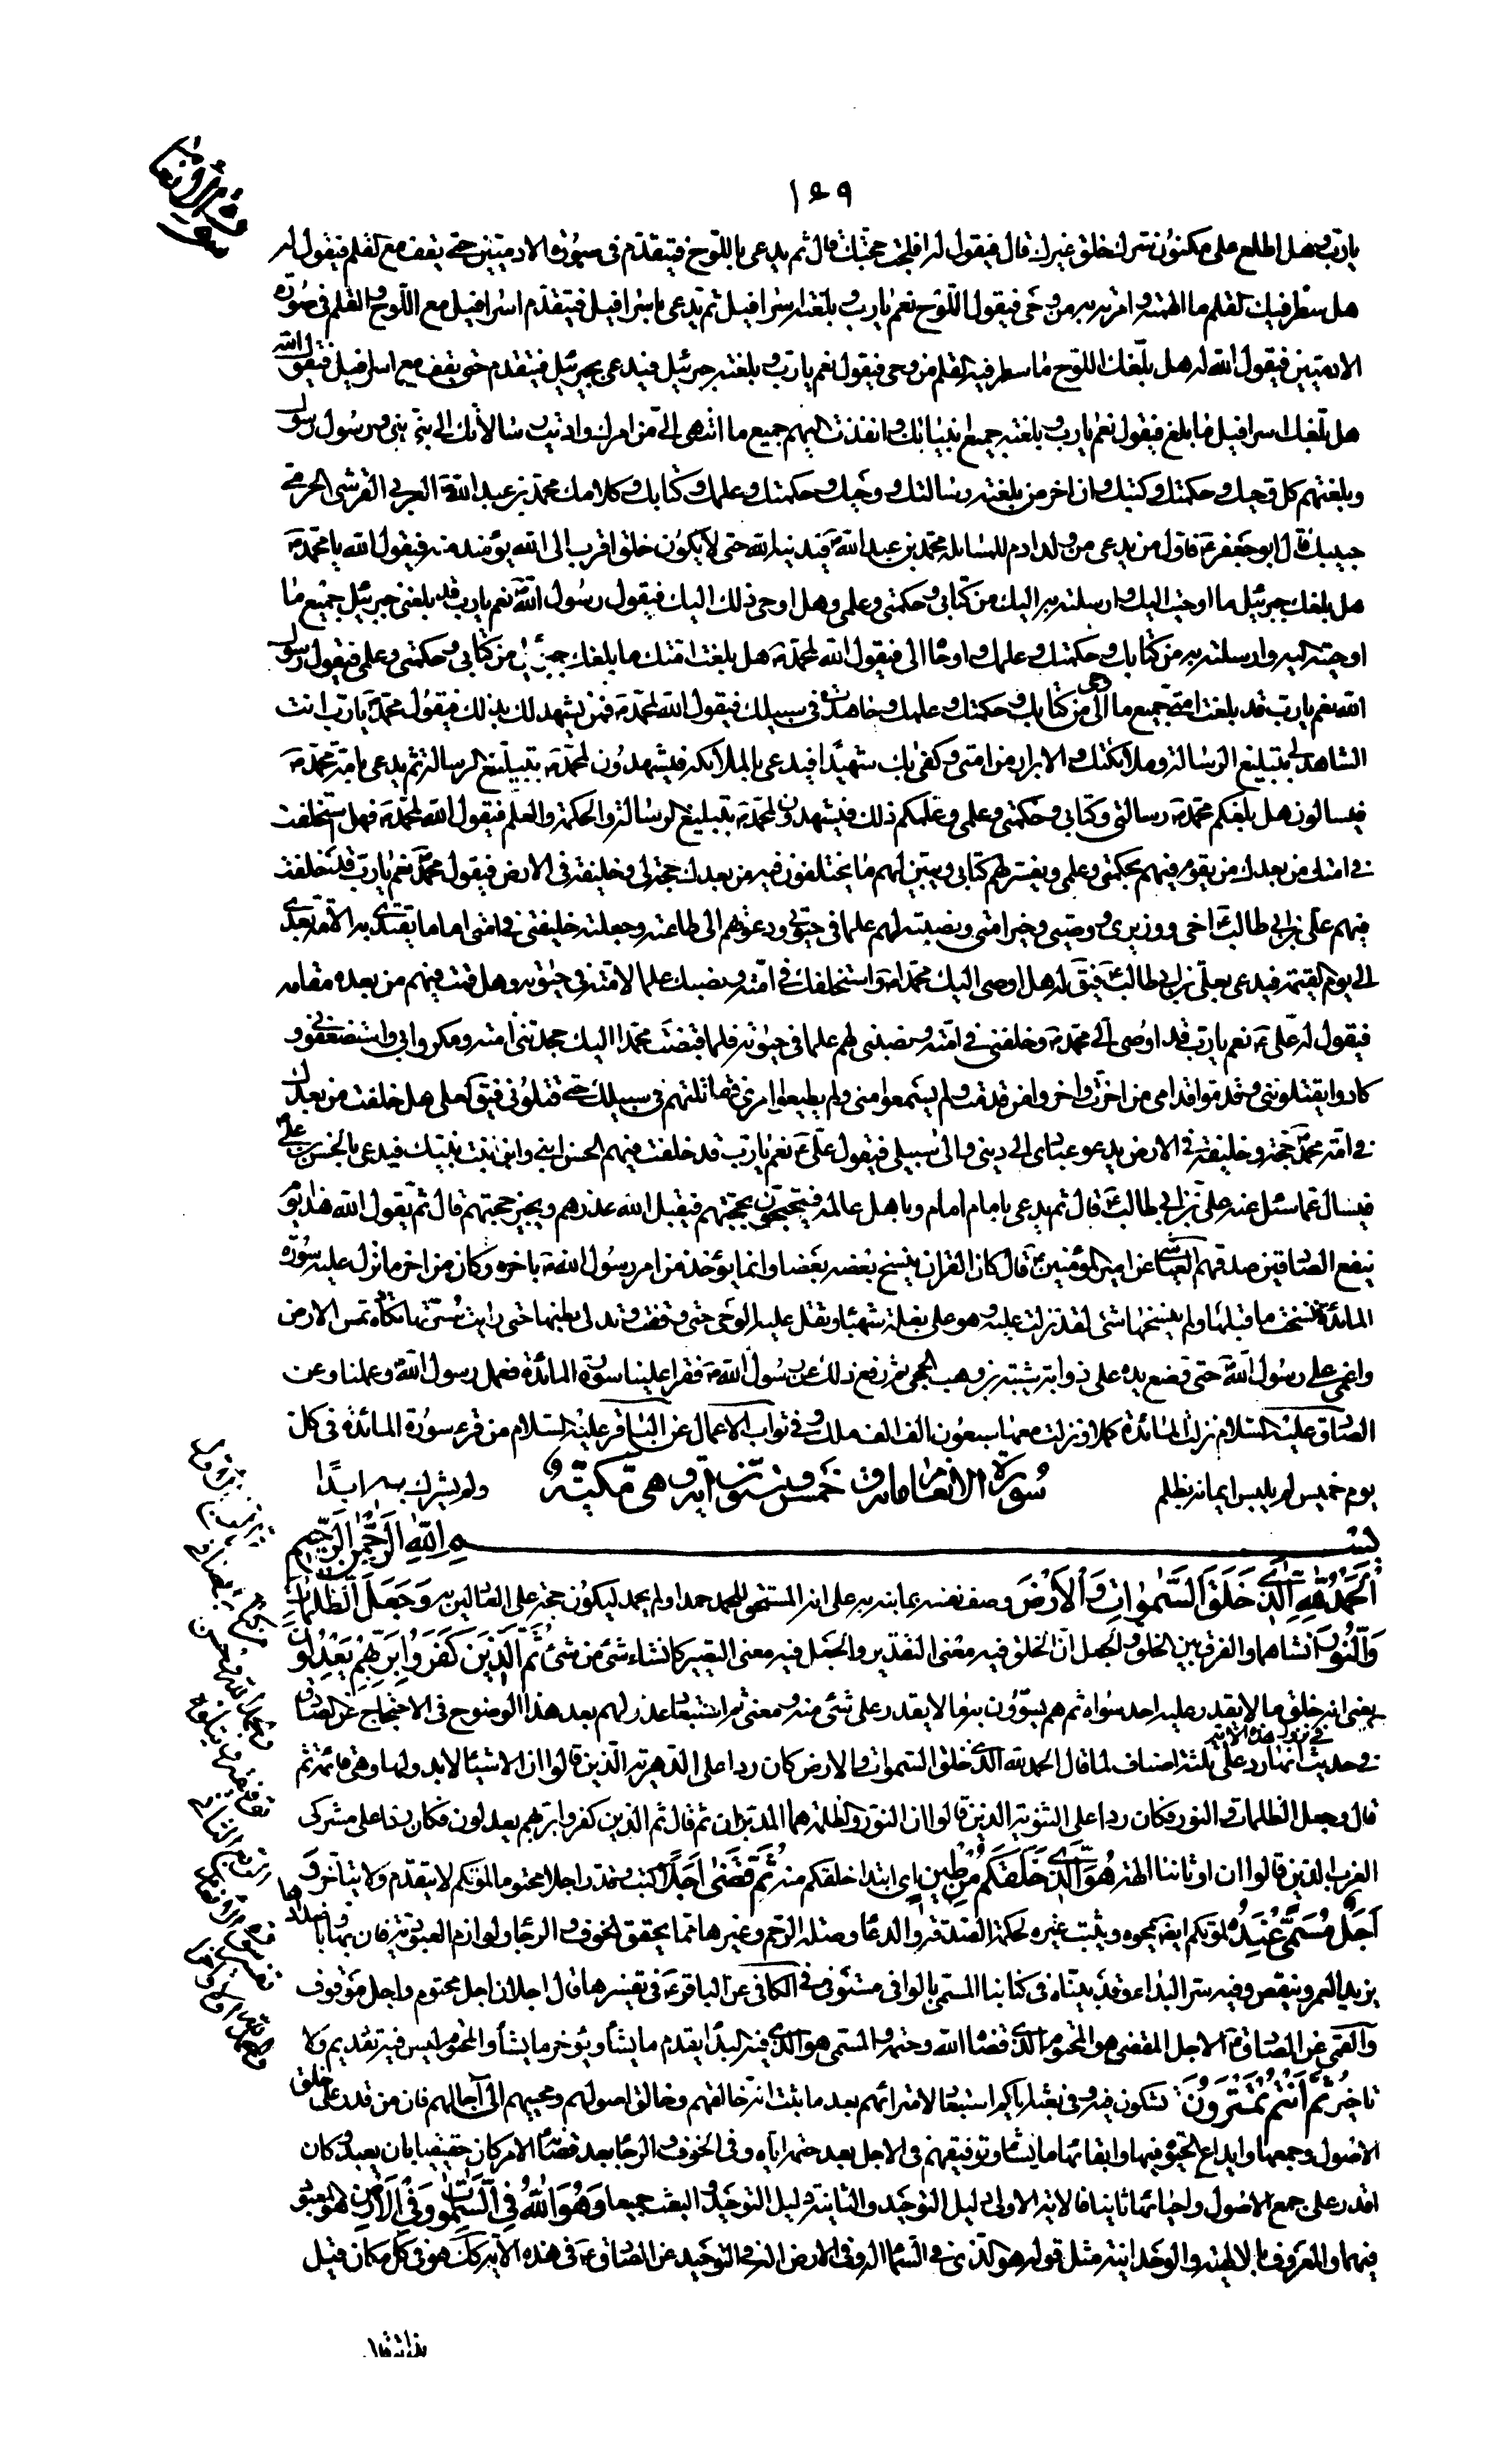 ١٤٩
يا رب وهل اطلع على مكنون سرك خلق غيرك قال فيقول له افلجت حجتك قال ثم يدعى باللوح فيتقدم في صورة الادميين حتى يقف مع القلم فيقول له
هل سطر فيك القلم ما الهمته وامرته به من وحي فيقول اللوح نعم يا رب وبلغته اسرافيل ثم يدعى باسرافيل فيتقدم اسرافيل مع اللوح والقلم في صورة
الادميين فيقول الله له هل بلغك اللوح ما سطر فيه القلم من وحي فيقول نعم يا رب وبلغته جبرئيل فيدعى بجبرئيل فيتقدم حتى يقف مع اسرافيل فيقول الله
هل بلغك اسرافيل ما بلغ فيقول نعم يا رب وبلغته جميع انبيائك وانفذت اليهم جميع ما انتهى الي من امرك واديت رسالاتك الى نبي نبي ورسول رسول
وبلغتهم كل وحيك وحكمتك وكتبك وان اخر من بلغته رسالتك ووحيك وحكمتك وعلمك وكتابك وكلامك محمد بن عبد الله العربي القرشي الحرمي
حبيبك قال ابو جعفر ع فاول من يدعى من ولد ادم للمسائلة محمد بن عبد الله ص فيدنيه الله حتى لا يكون خلق اقرب الى الله يومئذ منه فيقول الله يا محمد ص
هل بلغك جبرئيل ما اوحيت اليك وارسلته به اليك من كتابي وحكمتي وعلمي وهل اوحى ذلك اليك فيقول رسول الله ص نعم يا رب قد بلغني جبرئيل جميع ما
اوحيته اليه وارسلته به من كتابك وحكمتك وعلمك واوحاه الي فيقول الله لمحمد ص هل بلغت امتك ما بلغك جبرئيل من كتابي وحكمتي وعلمي فيقول رسول
الله نعم يا رب قد بلغت امتي جميع ما اوحى الي من كتابك وحكمتك وعلمك وجاهدت في سبيلك فيقول الله لمحمد ص فمن يشهد لك بذلك فيقول محمد ص يا رب انت
الشاهد لي بتبليغ الرسالة وملائكتك والابرار من امتي وكفى بك شهيدا فيدعى بالملائكة فيشهدون لمحمد ص بتبليغ الرسالة ثم يدعى بامة محمد ص
فيسالون هل بلغكم محمد ص رسالتي وكتابي وحكمتي وعلمي وعلمكم ذلك فيشهدون لمحمد ص بتبليغ الرسالة والحكمة والعلم فيقول الله لمحمد ص فهل استخلفت
في امتك من بعدك من يقوم فيهم بحكمتي وعلمي ويفسر لهم كتابي ويبين لهم ما يختلفون فيه من بعدك حجة لي وخليفة في الارض فيقول محمد ص نعم يا رب قد خلفت
فيهم علي بن ابي طالب ع اخي ووزيري ووصيي وخير امتي ونصبته لهم علما في حيوتي ودعوتهم الى طاعته وجعلته خليفتي في امتي اماما يقتدي به الامة بعدي
الى يوم القيمة فيدعى بعلي بن ابي طالب ع فيق له هل اوصى اليك محمد ص واستخلفك في امته ونصبك علما لامته في حيوته وهل قمت فيهم من بعده مقامه
فيقول له علي ع نعم يا رب قد اوصى الي محمد ص وخلفني في امته ونصبني لهم علما في حيوته فلما قبضت محمدا اليك جحدتني امته ومكروا بي واستضعفوني و
كادوا يقتلونني وقدموا قدامي من اخرت واخروا من قدمت ولم يسمعوا مني ولم يطيعوا امري فقاتلتهم في سبيلك حتى قتلوني فيق لعلي هل خلفت من بعدك
في امة محمد ص حجة وخليفة في الارض يدعو عبادي الى ديني والى سبيلي فيقول علي ع نعم يا رب قد خلفت فيهم الحسن ابني وابن بنت نبيك فيدعى بالحسن بن علي ع
فيسال عما سئل عنه علي بن ابي طالب ع قال ثم يدعى بامام امام وباهل عالمه فيحتجون بحجتهم فيقبل الله عذرهم ويجيز حجتهم قال ثم يقول الله هذا يوم
ينفع الصادقين صدقهم العياشي عن امير المؤمنين ع قال كان القران ينسخ بعضه بعضا وانما يؤخذ من امر رسول الله ص باخره وكان من اخر ما نزل عليه سورة
المائدة نسخت ما قبلها ولم ينسخها شئ لقد نزلت عليه وهو على بغلة شهباء وثقل عليه الوحي حتى وقفت وتدلى بطنها حتى رايت سرتها تكاد تمس الارض
واغمي على رسول الله ص حتى وضع يده على ذوابة شيبة بن وهب الجمحي ثم رفع ذلك عن رسول الله ص فقرا علينا سورة المائدة فعمل رسول الله ص وعملنا وعن
الصادق عليه السلام نزلت المائدة كملا ونزلت معها سبعون الف الف ملك وفي ثواب الاعمال عن الباقر عليه السلام من قرء سورة المائدة في كل
يوم خميس لم يلبس ايمانه بظلم ولم يشرك به ابدا
سورة الانعام مائة وخمس وستون اية وهي مكية
بسم الله الرحمن الرحيم
الحمد لله الذي خلق السموات والارض وصف نفسه بما نبه به على انه المستحق للحمد حمد او لم يحمد ليكون حجة على العادلين به وجعل الظلمات
والنور انشاهما والفرق بين الخلق والجعل ان الخلق فيه معنى التقدير والجعل فيه معنى التصيير كانشاء شئ من شئ ثم الذين كفروا بربهم يعدلون
يعني انه خلق ما لا يقدر عليه احد سواه ثم هم يسوون به ما لا يقدر على شئ منه ومعنى ثم استبعاد عدولهم بعد هذا الوضوح في الاحتجاج عن الصادق
في نزول هذه الاية
في حديث انها رد على ثلثة اصناف لما قال الحمد لله الذي خلق السموات والارض كان ردا على الدهرية الذين قالوا ان الاشياء لا بدو لها وهي دائمة ثم
قال وجعل الظلمات والنور فكان ردا على الثنوية الذين قالوا ان النور والظلمة هما المدبران ثم قال ثم الذين كفروا بربهم يعدلون فكان ردا على مشركي
العرب الذين قالوا ان اوثاننا الهة هو الذي خلقكم من طين اي ابتدا خلقكم منه ثم قضى اجلا كتب وقدر اجلا محتوما لموتكم لا يتقدم ولا يتاخر و
اجل مسمى عنده لموتكم ايضا يمحوه ويثبت غيره لحكمة الصدقة والدعاء وصلة الرحم وغيرها مما يحقق الخوف والرجاء ولوازم العبودية فان بها
يزيد العمر وينقص وفيه سر البداء وقد بيناه في كتابنا المسمى بالوافي مستوفى في الكافي عن الباقر ع في تفسيرها قال اجلان اجل محتوم واجل موقوف
والقمي عن الصادق ع الاجل المقضي هو المحتوم الذي قضاه الله وحتمه والمسمى هو الذي فيه البداء يقدم ما يشاء ويؤخر ما يشاء والمحتوم ليس فيه تقديم ولا
تاخير ثم انتم تمترون تشكون استبعاد لامترائهم بعد ما ثبت انه خالقهم وخالق اصولهم ومحييهم الى اجالهم فان من قدر على خلق
الاصول وجمعها وايداع الحيوة فيها وابقائها ما يشاء
اقدر على جمع الاصول واحيائها ثانيا فالاية الاولى دليل التوحيد والثانية دليل البعث وهو الله في السموات وفي الارض هو المعبود
فيهما والمعروف بالالهية والوحدانية مثل قوله هو الذي في السماء اله وفي الارض اله في التوحيد عن الصادق ع في هذه الاية كذلك هو في كل مكان قيل